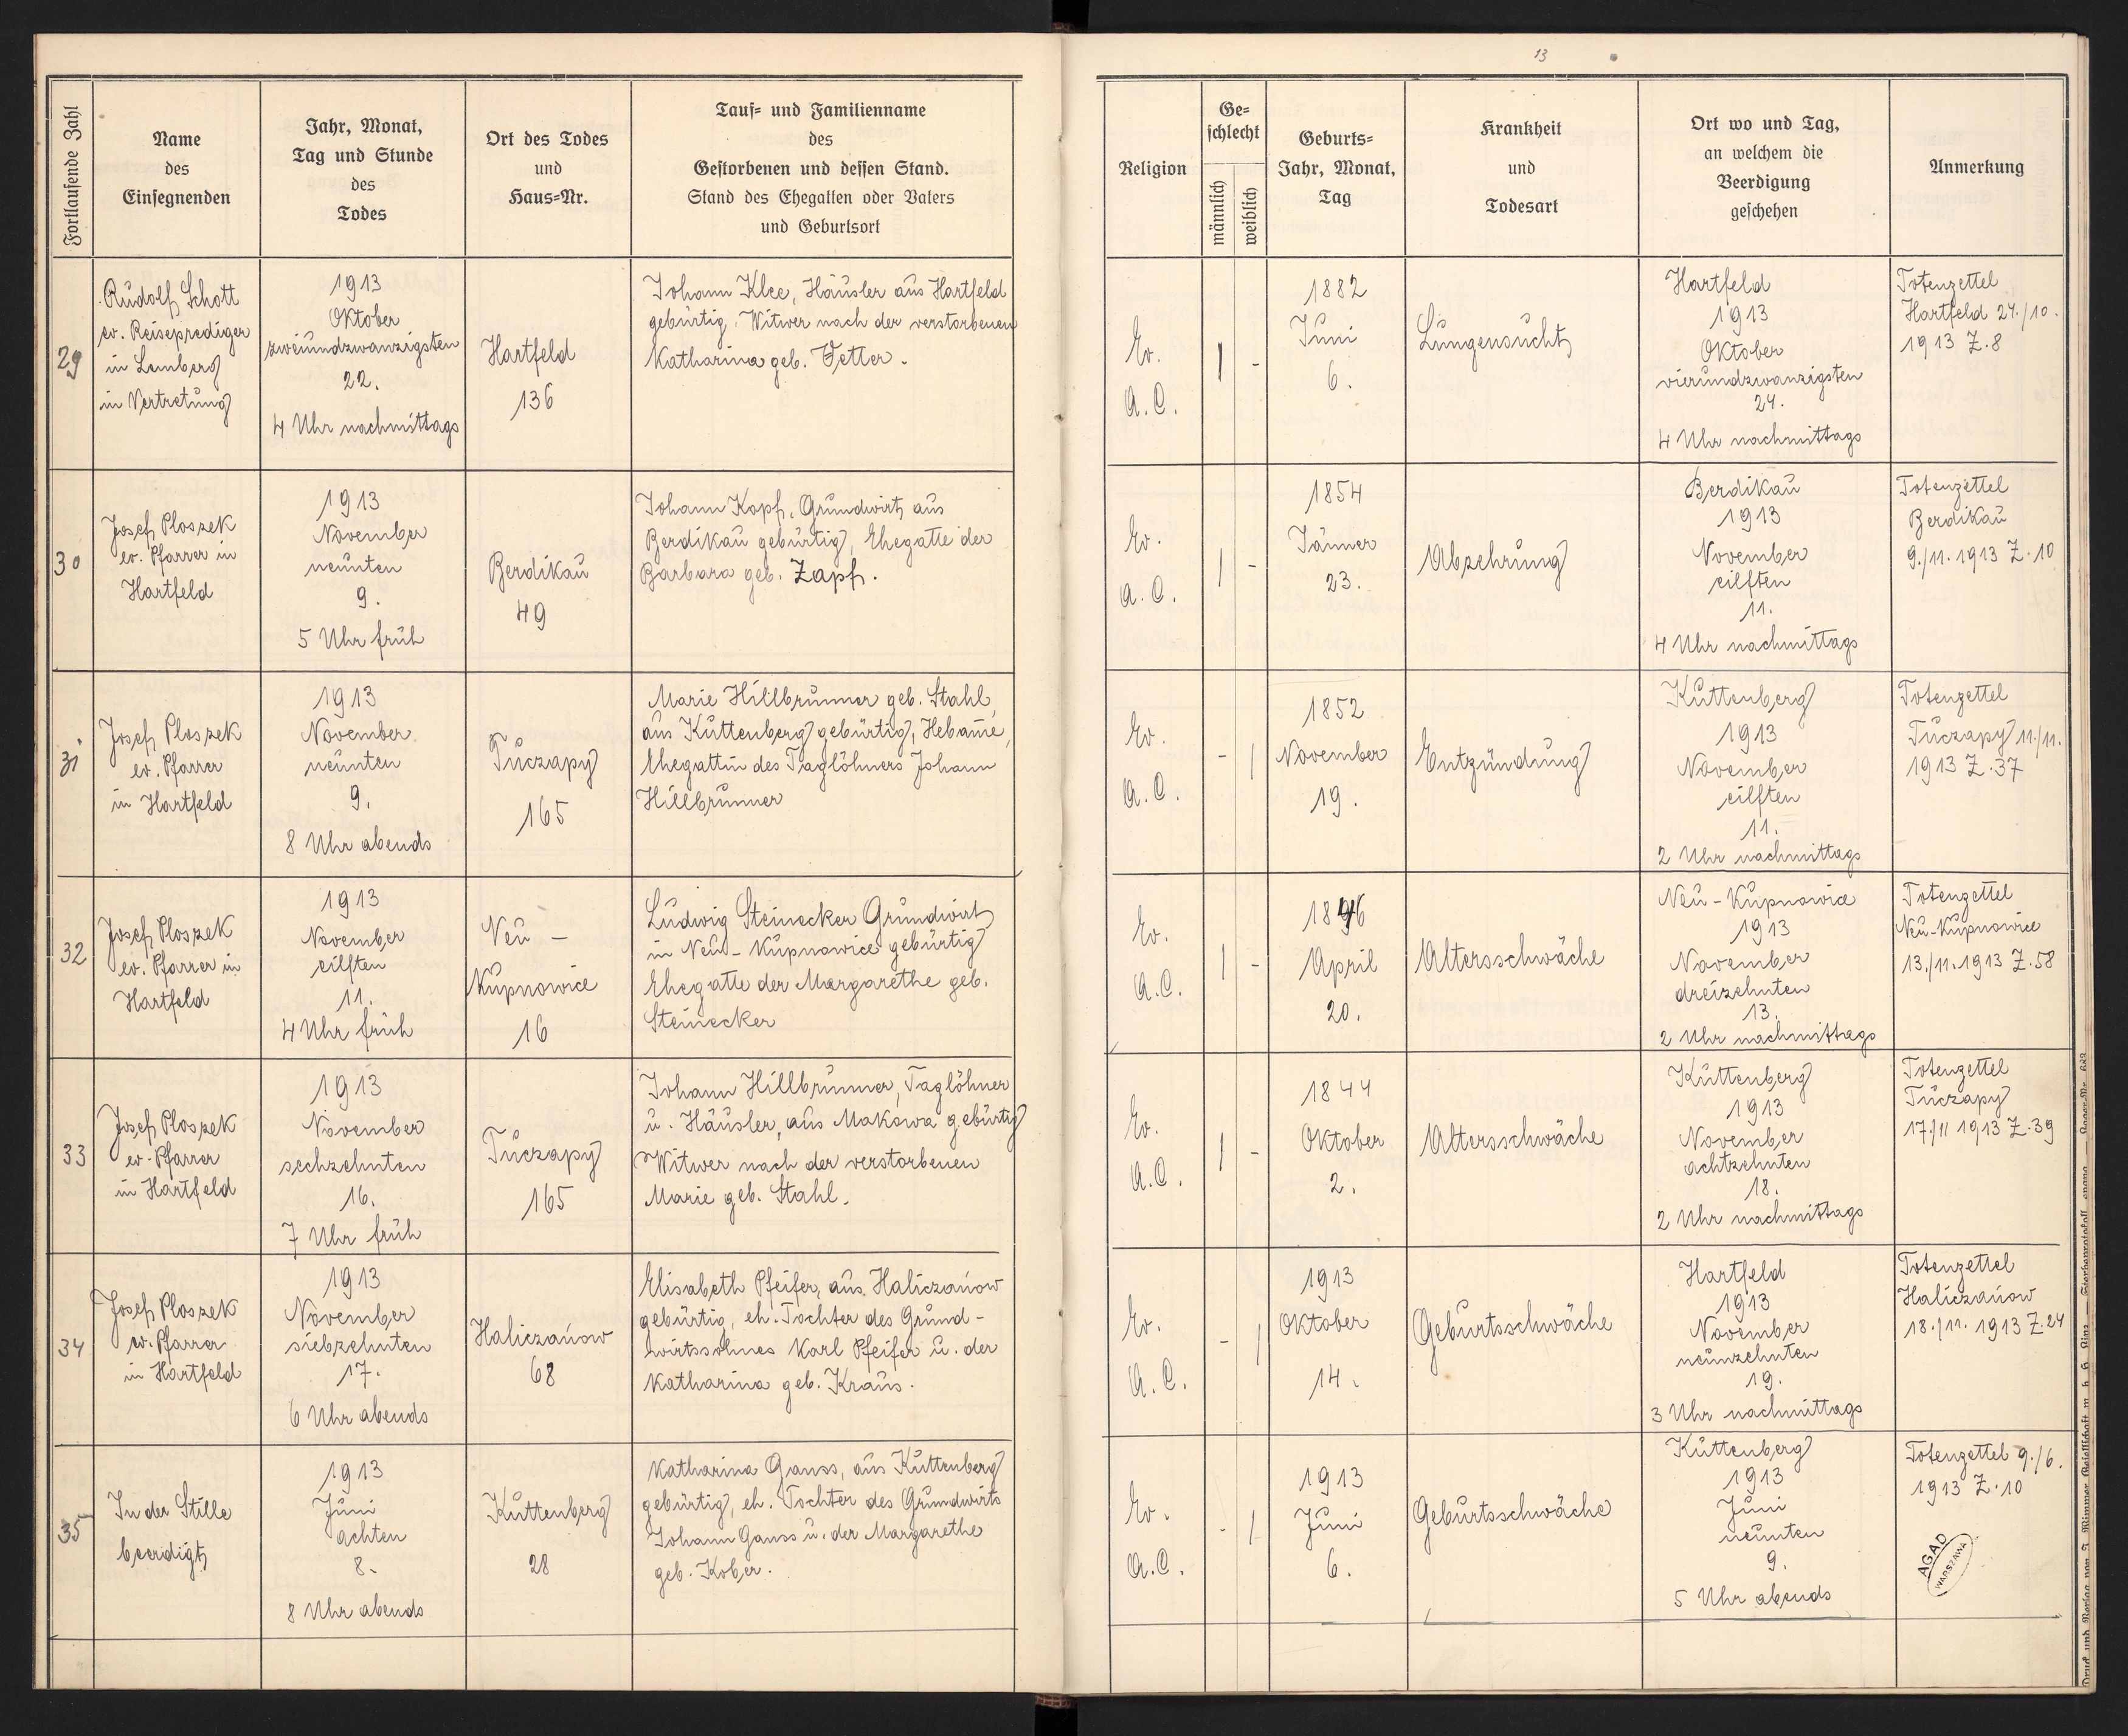 13
Fortlaufende Zahl
Name
des
Einsegnenden
Jahr, Monat,
Tag und Stunde
des
Todes
Ort des Todes
und
Haus=Nr.
Tauf= und Familienname
des
Gestorbenen und dessen Stand.
Stand des Ehegatten oder Vaters
und Geburtsort
Religion
Ge=
schlecht
männlich
weiblich
Geburts=
Jahr, Monat,
Tag
Krankheit
und
Todesart
Ort wo und Tag,
an welchem die
Beerdigung
geschehen
Anmerkung
29
Rudolf Schott
ev. Reiseprediger
in Lemberg
in Vertretung
1913
Oktober
zweiundzwanzigsten
22.
4 Uhr nachmittags
Hartfeld
136
Johann Klee, Häusler aus Hartfeld
gebürtig, Witwer nach der verstorbenen
Katharina geb. Vetter.
Ev.
A. C.
1882
Juni
6.
Lungensucht
Hartfeld
1913
Oktober
vierundzwanzigsten
24.
4 Uhr nachmittags
Totenzettel
Hartfeld 24./10.
1913 Z. 8
30
Josef Ploszek
ev. Pfarrer in
Hartfeld
1913
November
neunten
9.
5 Uhr früh
Berdikau
49
Johann Kopf, Grundwirt aus
Berdikau gebürtig, Ehegatte der
Barbara geb. Zapf.
Ev.
A. C.
1854
Jänner
23.
Abzehrung
Berdikau
1913
November
eilften
11.
4 Uhr nachmittags
Totenzettel
Berdikau
9./11. 1913 Z. 10
31
Josef Ploszek
ev. Pfarrer
in Hartfeld
1913
November
neunten
9.
8 Uhr abends
Tuczapy
165
Marie Hillbrunner geb. Stahl,
aus Kuttenberg gebürtig, Hebame,
Ehegattin des Taglöhners Johann
Hillbrunner
Ev.
A. C.
1852
November
19.
Entzündung
Kuttenberg
1913
November
eilften
11.
2 Uhr nachmittags
Totenzettel
Tuczapy 11./11.
1913 Z. 37
32
Josef Ploszek
ev. Pfarrer in
Hartfeld
1913
November
eilften
11.
4 Uhr früh
Neu -
Kupnowice
16
Ludwig Steinecker Grundwirt
in Neu-Kupnowice gebürtig
Ehegatte der Margarethe geb.
Steinecker
Ev.
A. C.
1846
April
20.
Altersschwäche
Neu-Kupnowice
1913
November
dreizehnten
13.
2 Uhr nachmittags
Totenzettel
Neu-Kupnowice
13./11. 1913 Z. 58
33
Josef Ploszek
ev. Pfarrer
in Hartfeld
1913
November
sechzehnten
16.
7 Uhr früh
Tuczapy
165
Johann Hillbrunner, Taglöhner
u. Häusler, aus Makowa gebürtig
Witwer nach der verstorbenen
Marie geb. Stahl.
Ev.
A. C.
1844
Oktober
2.
Altersschwäche
Kuttenberg
1913
November
achtzehnten
18.
2 Uhr nachmittags
Totenzettel
Tuczapy
17./11 1913 Z. 39
34
Josef Ploszek
ev. Pfarrer
in Hartfeld
1913
November
siebzehnten
17.
6 Uhr abends
Haliczanow
68
Elisabeth Pfeifer, aus Haliczanow
gebürtig, eh. Tochter des Grund-
wirtssohnes Karl Pfeifer u. der
Katharina geb. Kraus.
Ev.
A. C.
1913
Oktober
14.
Geburtsschwäche
Hartfeld
1913
November
neunzehnten
19.
3 Uhr nachmittags
Totenzettel
Haliczanow
18./11. 1913 Z. 24
35
In der Stille
beerdigt
1913
Juni
achten
8.
8 Uhr abends
Kuttenberg
28
Katharina Gauss, aus Kuttenberg
gebürtig, eh. Tochter des Grundwirts
Johann Gauss u. der Margarethe
geb. Kober.
Ev.
A. C.
1913
Juni
6.
Geburtsschwäche
Kuttenberg
1913
Juni
neunten
9.
5 Uhr abends
Totenzettel 9./6.
1913 Z. 10
AGAD
WARSZAWA